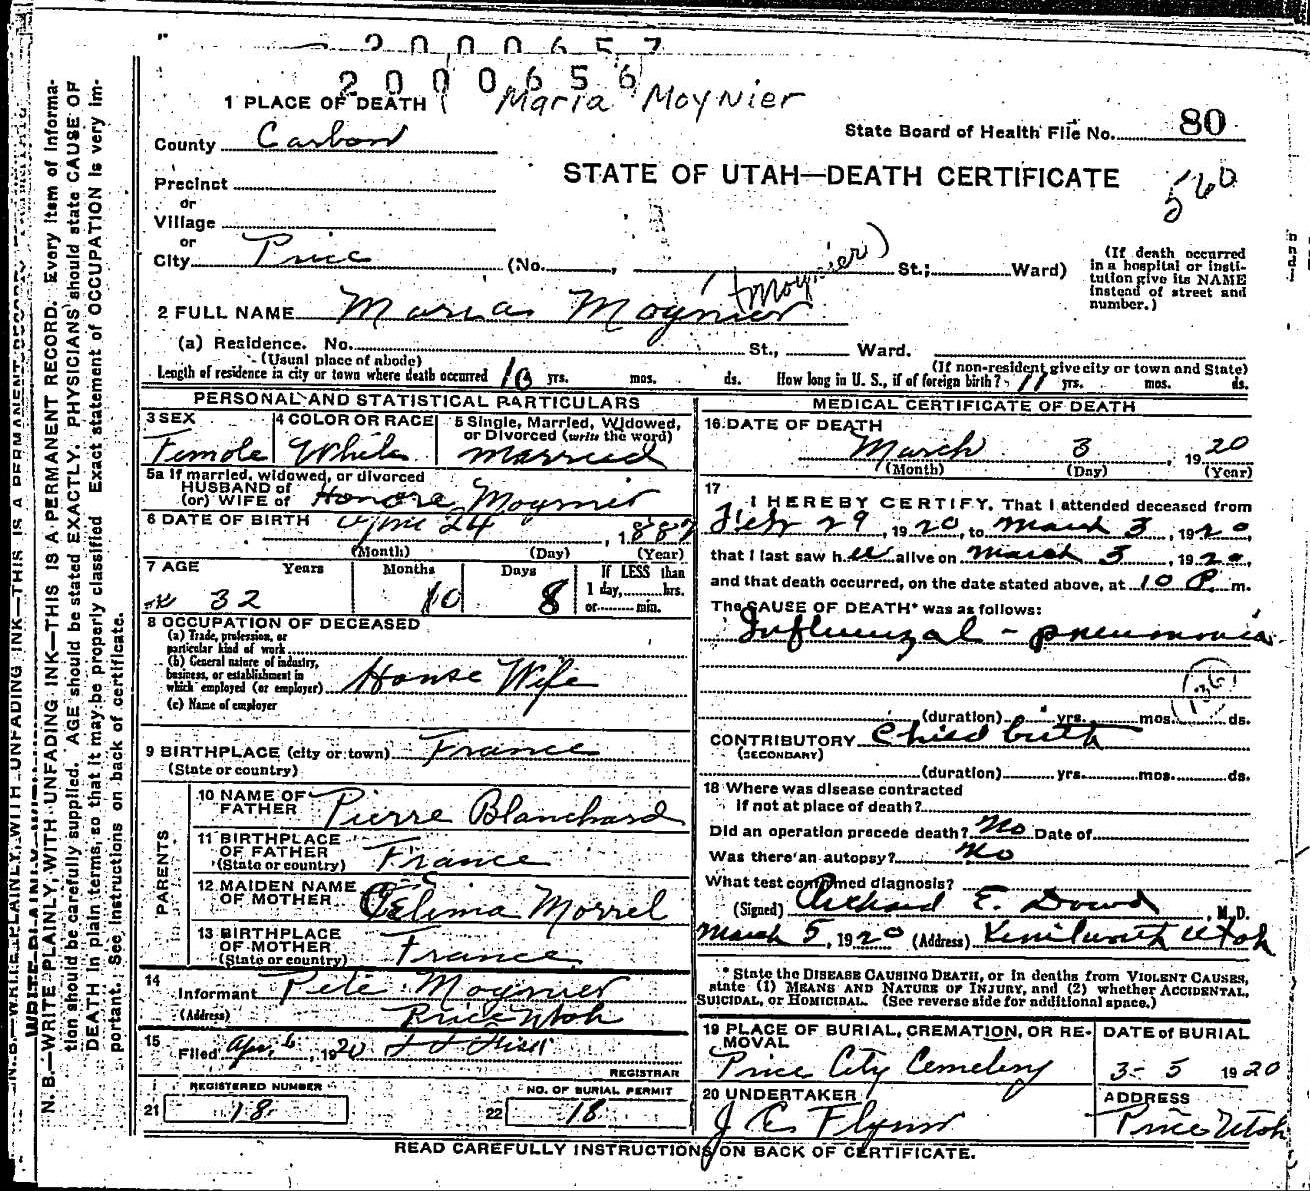 2000657
2000656
Maria Moynier
1 PLACE OF DEATH
State Board of Health File No. 80
County Carbon
STATE OF UTAH—DEATH CERTIFICATE
560
Precinct
or
Village
or
City Price (No. , St.; Ward)
(If death occurred in a hospital or insti-
tution give its NAME instead of street and number.)
(Moynier)
2 FULL NAME Marias Moynier
(a) Residence. No. St., Ward.
(Usual place of abode) (If non-resident give city or town and State)
Length of residence in city or town where death occurred 10 yrs. mos. ds. How long in U. S., if of foreign birth? 11 yrs. mos. ds.
PERSONAL AND STATISTICAL PARTICULARS
3 SEX Female
4 COLOR OR RACE White
5 Single, Married, Widowed, or Divorced (write the word) Married
5a If married, widowed, or divorced
HUSBAND of
(or) WIFE of Honore Moynier
6 DATE OF BIRTH April 24, 1887
(Month) (Day) (Year)
7 AGE Years Months Days If LESS than
1 day, hrs.
or min.
32 10 8
8 OCCUPATION OF DECEASED
(a) Trade, profession, or
particular kind of work
(b) General nature of industry,
business, or establishment in
which employed (or employer) House Wife
(c) Name of employer
9 BIRTHPLACE (city or town) France
(State or country)
PARENTS
10 NAME OF FATHER Pierre Blanchard
11 BIRTHPLACE OF FATHER
(State or country) France
12 MAIDEN NAME OF MOTHER Celima Morrel
13 BIRTHPLACE OF MOTHER
(State or country) France
14 Informant Pete Moynier
(Address) Price Utah
15 Filed Apr. 6, 1920
REGISTRAR
21 REGISTERED NUMBER 18
22 NO. OF BURIAL PERMIT 18
MEDICAL CERTIFICATE OF DEATH
16 DATE OF DEATH
March 3, 1920
(Month) (Day) (Year)
17 I HEREBY CERTIFY, That I attended deceased from
Feb 29, 1920, to March 3, 1920,
that I last saw her alive on March 3, 1920,
and that death occurred, on the date stated above, at 10 P. m.
The CAUSE OF DEATH* was as follows:
Influenzal - pneumonia
(duration) yrs. mos. ds.
CONTRIBUTORY Child birth
(SECONDARY)
(duration) yrs. mos. ds.
18 Where was disease contracted
if not at place of death?
Did an operation precede death? No Date of
Was there an autopsy? No
What test confirmed diagnosis?
(Signed) Richard E. Dowd, M. D.
March 5, 1920 (Address) Kenilworth Utah
* State the DISEASE CAUSING DEATH, or in deaths from VIOLENT CAUSES,
state (1) MEANS AND NATURE OF INJURY, and (2) whether ACCIDENTAL,
SUICIDAL, or HOMICIDAL. (See reverse side for additional space.)
19 PLACE OF BURIAL, CREMATION, OR RE-
MOVAL
Price City Cemetery
DATE of BURIAL
3-5 1920
20 UNDERTAKER
J E Flynn
ADDRESS
Price Utah
READ CAREFULLY INSTRUCTIONS ON BACK OF CERTIFICATE.
N. B.—WRITE PLAINLY, WITH UNFADING INK—THIS IS A PERMANENT RECORD. Every item of informa-
tion should be carefully supplied. AGE should be stated EXACTLY. PHYSICIANS should state CAUSE OF
DEATH in plain terms, so that it may be properly classified. Exact statement of OCCUPATION is very im-
portant. See instructions on back of certificate.